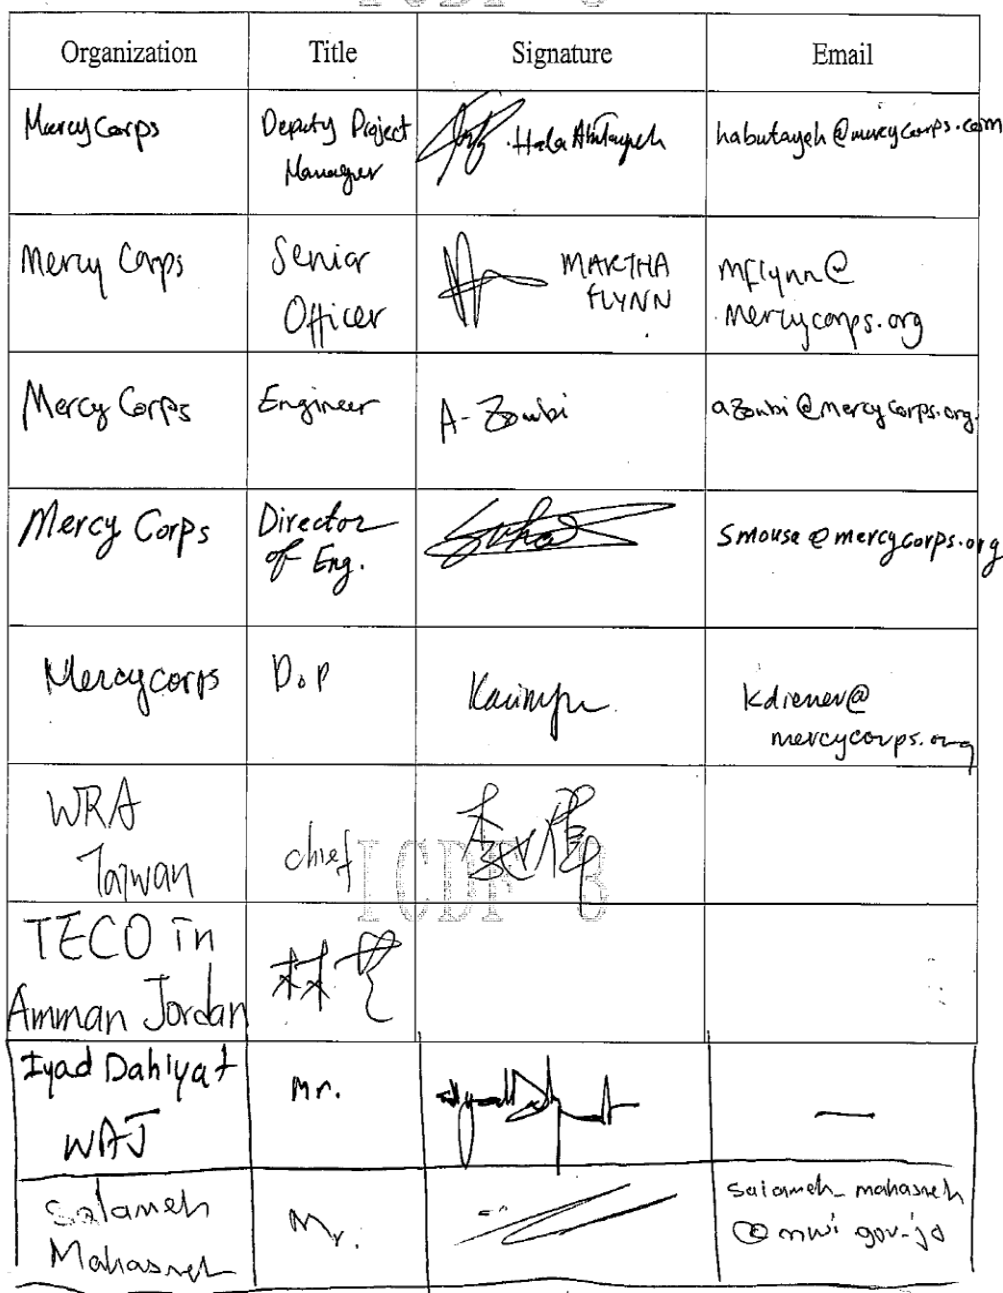 Organization Title Signature Email
MercyCorps Deputy Project Manager Hala AbuTayeh habutayeh@mercycorps.com
Mercy Corps Senior Officer MARTHA FLYNN mflynn@mercycorps.org
Mercy Corps Engineer A-Zoubi azoubi@mercycorps.org
Mercy Corps Director of Eng. Suha smousa@mercycorps.org
Mercycorps DoP kdiener@mercycorps.org
WRA Taiwan chief
ICDF 8
TECO in Amman Jordan 林
Iyad Dahiyat WAJ Mr. —
Salameh Mahasneh Mr. salameh_mahasneh@mwi.gov.jo